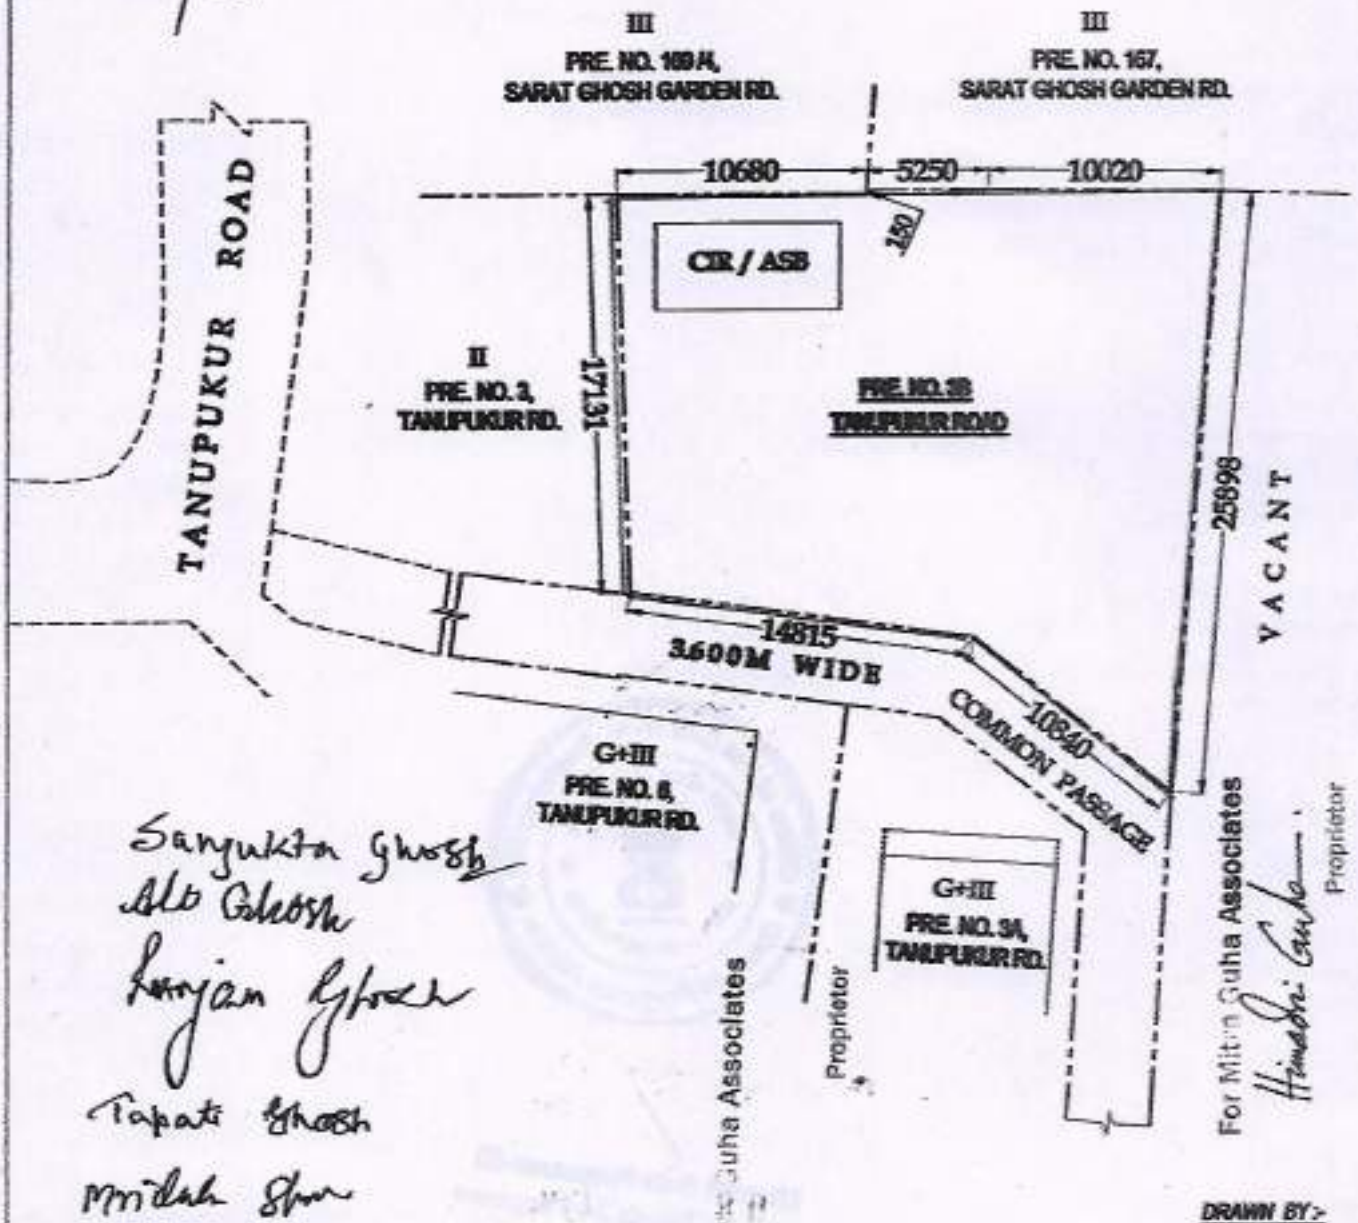 III
PRE. NO. 169/4,
SARAT GHOSH GARDEN RD.
III
PRE. NO. 167,
SARAT GHOSH GARDEN RD.
10680
5250
10020
150
CIR / ASB
TANUPUKUR ROAD
II
PRE. NO. 3,
TANUPUKUR RD.
17131
PRE. NO. 3B
TANUPUKUR ROAD
25898
VACANT
14815
3.600M WIDE
10840
COMMON PASSAGE
G+III
PRE. NO. 6,
TANUPUKUR RD.
G+III
PRE. NO. 3A,
TANUPUKUR RD.
Sanjukta Ghosh
Alo Ghosh
Ranjan Ghosh
Tapati Ghosh
Guha Associates
Proprietor
For Mitra Guha Associates
Himadri Guha
Proprietor
DRAWN BY:-